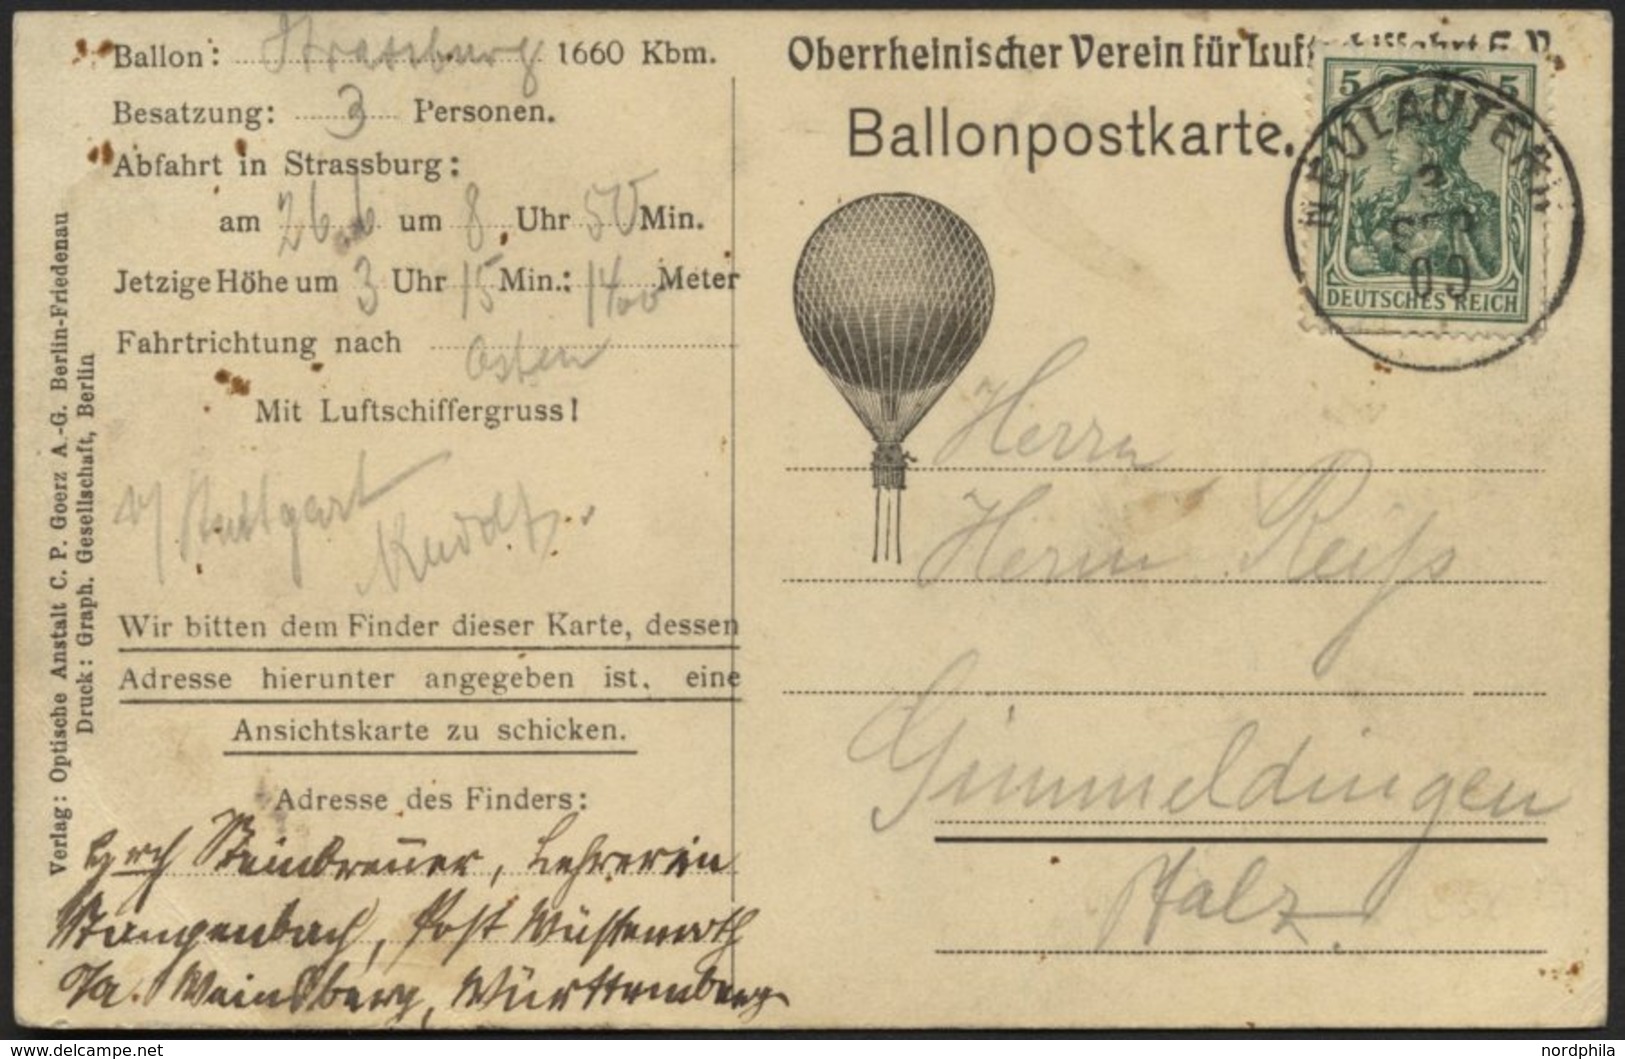 Ballon: Strassburg 1660 Kbm.
Besatzung: 3 Personen.
Abfahrt in Strassburg:
am 26.6 um 8 Uhr 50 Min.
Jetzige Höhe um 3 Uhr 15 Min.: 1400 Meter
Fahrtrichtung nach Osten
Mit Luftschiffergruss!
Stuttgart
Wir bitten dem Finder dieser Karte, dessen
Adresse hierunter angegeben ist, eine
Ansichtskarte zu schicken.
Adresse des Finders:
Steinbrenner, Lehrerin
Stangenbach, Post Wüstenroth
O/A. Weinsberg, Württemberg
Verlag: Optische Anstalt C. P. Goerz A.-G. Berlin-Friedenau
Druck: Graph. Gesellschaft, Berlin
Oberrheinischer Verein für Luftschiffahrt E.V.
Ballonpostkarte.
5 5
DEUTSCHES REICH
NEULAUTERN
2
SEP
09
Herrn
Herrn Reiss
Gimmeldingen
Pfalz.
(c) www.philasearch.com
nordphila